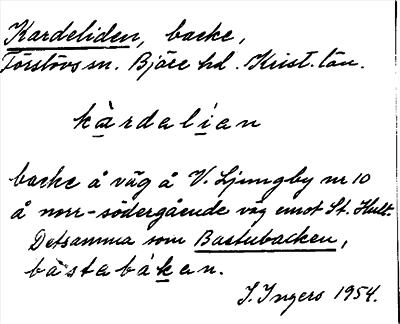 Kardeliden, backe,
Förslövs sn. Bjäre hd. Krist. län.
kàrdalían
backe å väg å V. Ljungby nr 10
å norr-södergående väg emot St. Hult.
Detsamma som Bastubacken,
bàstabákan.
I. Ingers 1954.